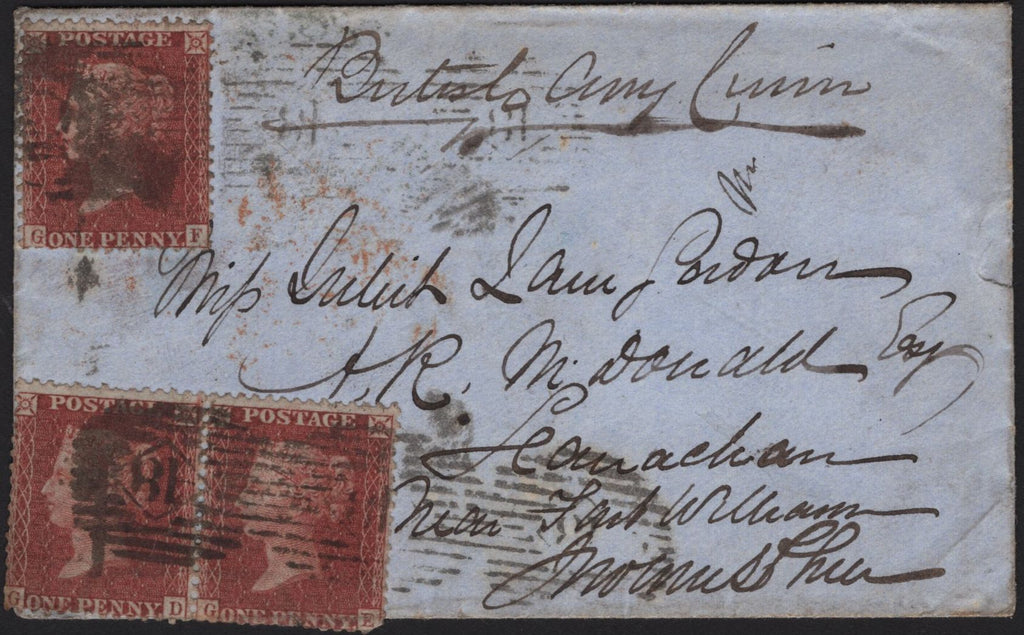 POSTAGE
G ONE PENNY F
British Army Crimea
Miss Juliet Jane Gordon
A. R. McDonald Esq
Leanachan
Near Fort William
Invernesshire
POSTAGE
G ONE PENNY D
POSTAGE
G ONE PENNY E